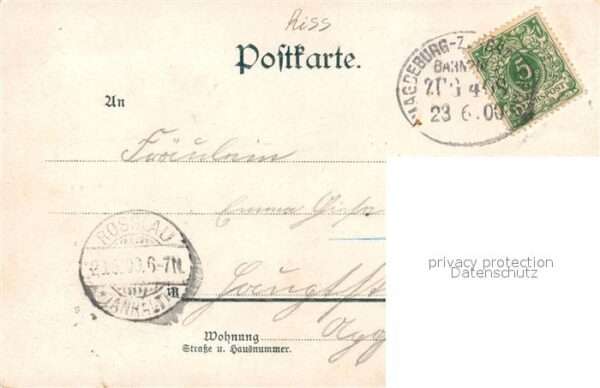 Riss
Postkarte.
MAGDEBURG-Z
BAHNPOST
ZUG
23 6.00
5
An
Fräulein
Emma
ROSSLAU
23.6.00.6-7N.
(ANHALT)
in
Wohnung
Straße u. Hausnummer.
privacy protection
Datenschutz